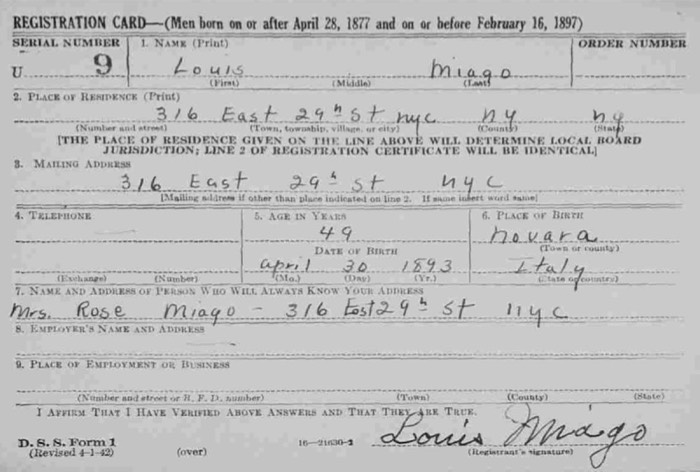 REGISTRATION CARD—(Men born on or after April 28, 1877 and on or before February 16, 1897)
SERIAL NUMBER 1. NAME (Print) ORDER NUMBER
U 9 Louis Miago
(First) (Middle) (Last)
2. PLACE OF RESIDENCE (Print)
316 East 29th St nyc ny ny
(Number and street) (Town, township, village, or city) (County) (State)
[THE PLACE OF RESIDENCE GIVEN ON THE LINE ABOVE WILL DETERMINE LOCAL BOARD
JURISDICTION; LINE 2 OF REGISTRATION CERTIFICATE WILL BE IDENTICAL]
3. MAILING ADDRESS
316 East 29th St nyc
[Mailing address if other than place indicated on line 2. If same insert word same]
4. TELEPHONE 5. AGE IN YEARS 6. PLACE OF BIRTH
49 novara
DATE OF BIRTH (Town or county)
april 30 1893 Italy
(Exchange) (Number) (Mo.) (Day) (Yr.) (State or country)
7. NAME AND ADDRESS OF PERSON WHO WILL ALWAYS KNOW YOUR ADDRESS
Mrs. Rose Miago - 316 East 29th St nyc
8. EMPLOYER'S NAME AND ADDRESS
9. PLACE OF EMPLOYMENT OR BUSINESS
(Number and street or R. F. D. number) (Town) (County) (State)
I AFFIRM THAT I HAVE VERIFIED ABOVE ANSWERS AND THAT THEY ARE TRUE.
D. S. S. Form 1
(Revised 4-1-42) (over) 16—21630-2 Louis Miago
(Registrant's signature)